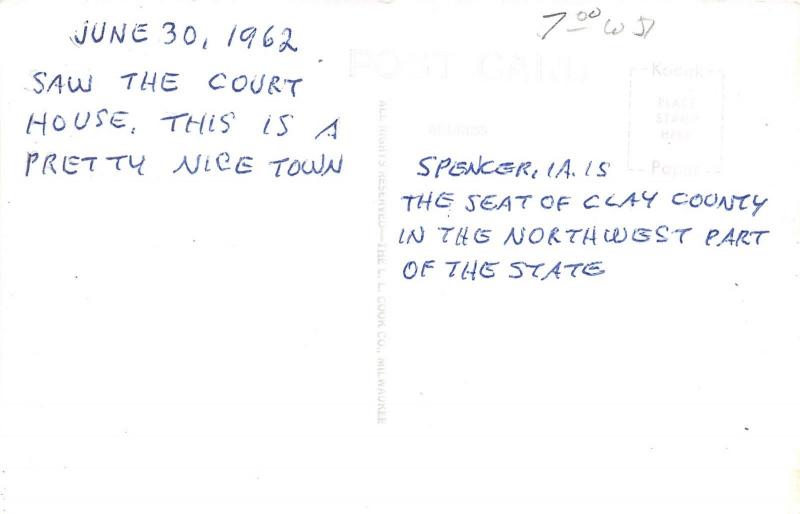 JUNE 30, 1962
SAW THE COURT
HOUSE. THIS IS A
PRETTY NICE TOWN
7.00
POST CARD
ADDRESS
Kodak
PLACE
STAMP
HERE
Paper
ALL RIGHTS RESERVED—THE L. L. COOK CO., MILWAUKEE
SPENCER, IA. IS
THE SEAT OF CLAY COUNTY
IN THE NORTHWEST PART
OF THE STATE